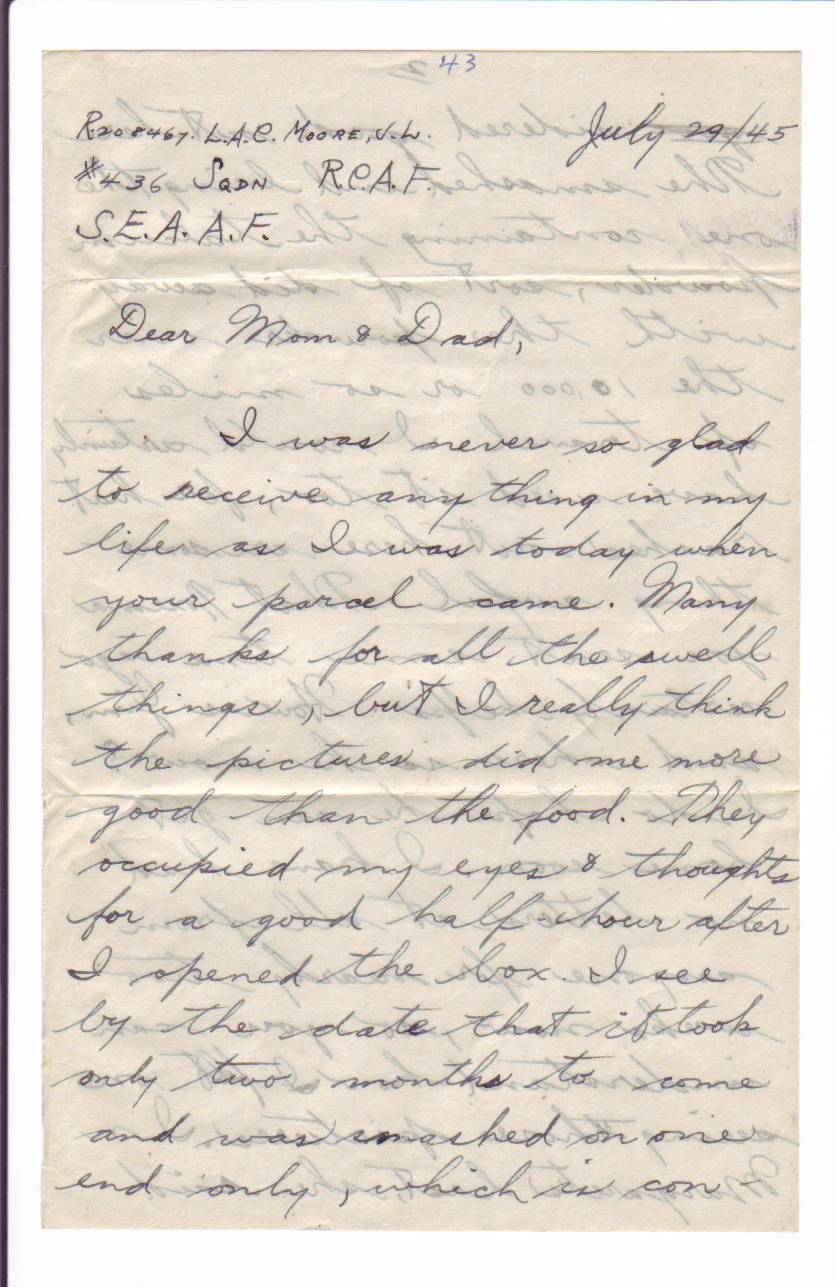 43
R208467. L.A.C. MOORE, J.W. July 29/45
#436 SQDN R.C.A.F.
S.E.A.A.F.
Dear Mom & Dad,
I was never so glad
to receive anything in my
life as I was today when
your parcel came. Many
thanks for all the swell
things, but I really think
the pictures did me more
good than the food. They
occupied my eyes & thoughts
for a good half-hour after
I opened the box. I see
by the date, that it took
only two months to come
and was smashed on one
end only, which is con-